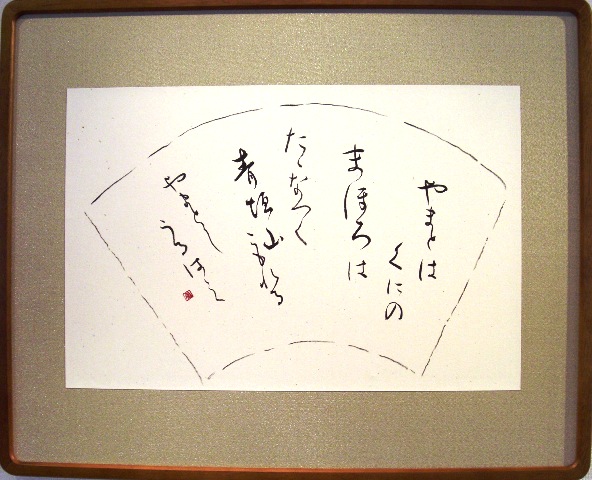 やまとは
くにの
まほろは
たゝなつく
青垣山こもれる
やまとし
うるはし